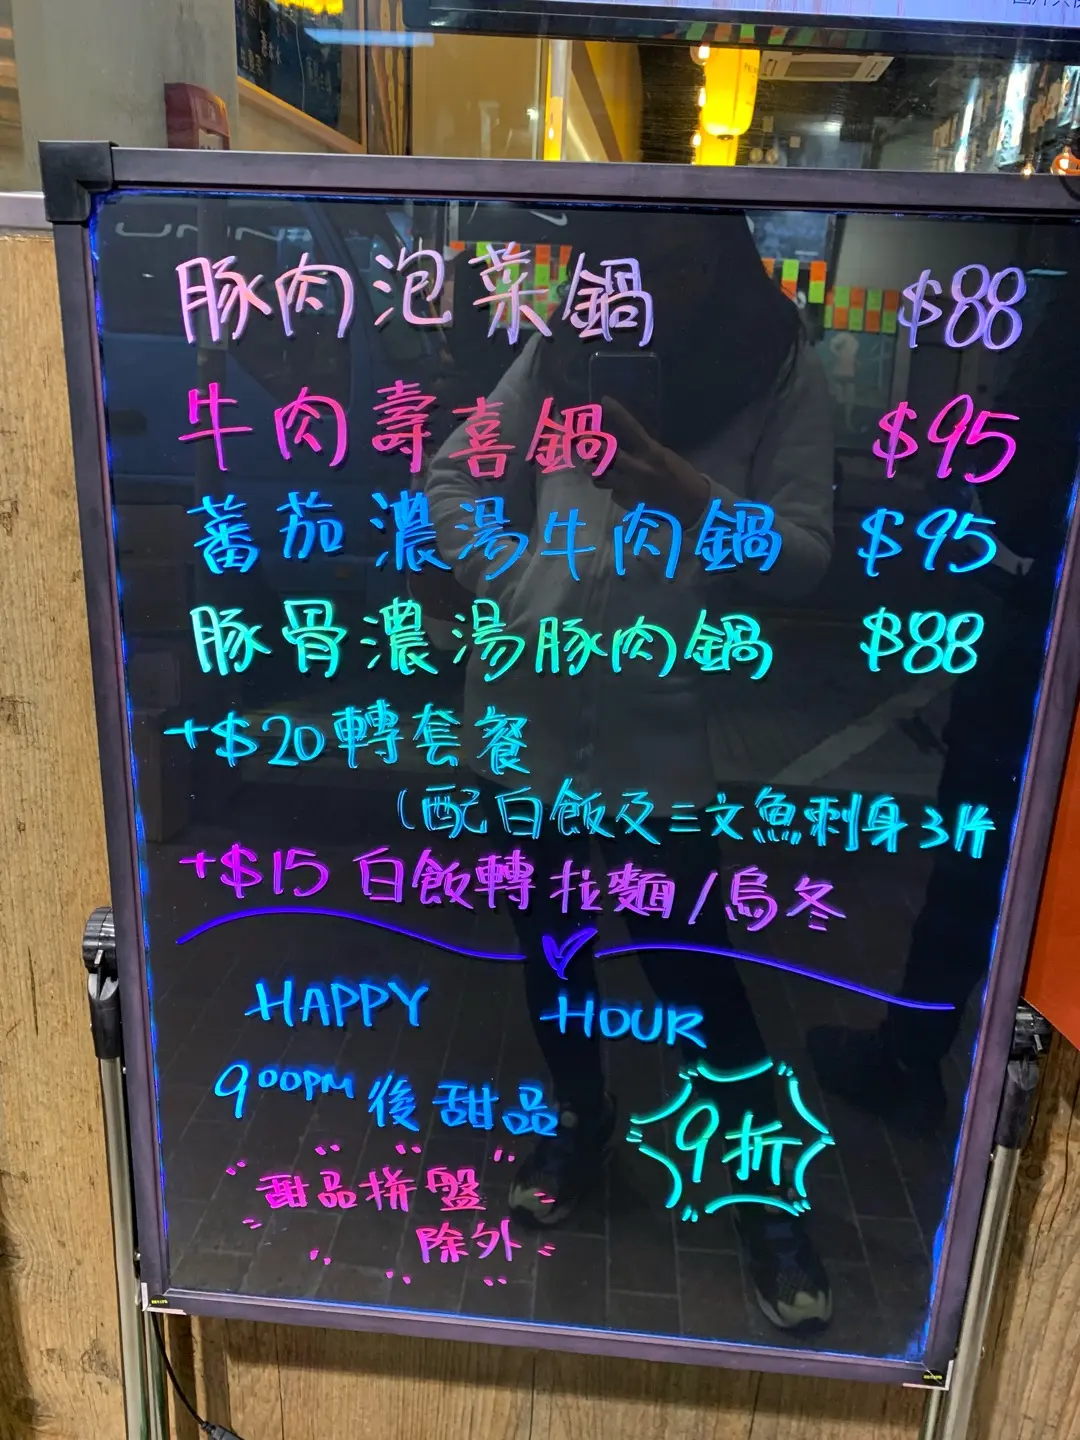 豚肉泡菜鍋 $88
牛肉壽喜鍋 $95
蕃茄濃湯牛肉鍋 $95
豚骨濃湯豚肉鍋 $88
+$20轉套餐
(配白飯及三文魚刺身3片
+$15 白飯轉拉麵/烏冬
HAPPY HOUR
9:00PM後甜品
9折
甜品拼盤
除外